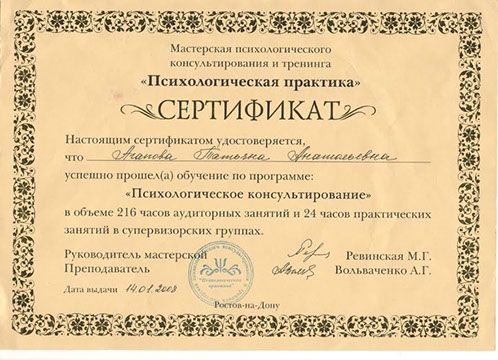 Мастерская психологического
консультирования и тренинга
«Психологическая практика»
СЕРТИФИКАТ
Настоящим сертификатом удостоверяется,
что Агапова Татьяна Анатольевна
успешно прошел(а) обучение по программе:
«Психологическое консультирование»
в объеме 216 часов аудиторных занятий и 24 часов практических
занятий в супервизорских группах.
Руководитель мастерской Ревинская М.Г.
Преподаватель Вольваченко А.Г.
"Психологическая практика"
Дата выдачи 14.01.2008
Ростов-на-Дону